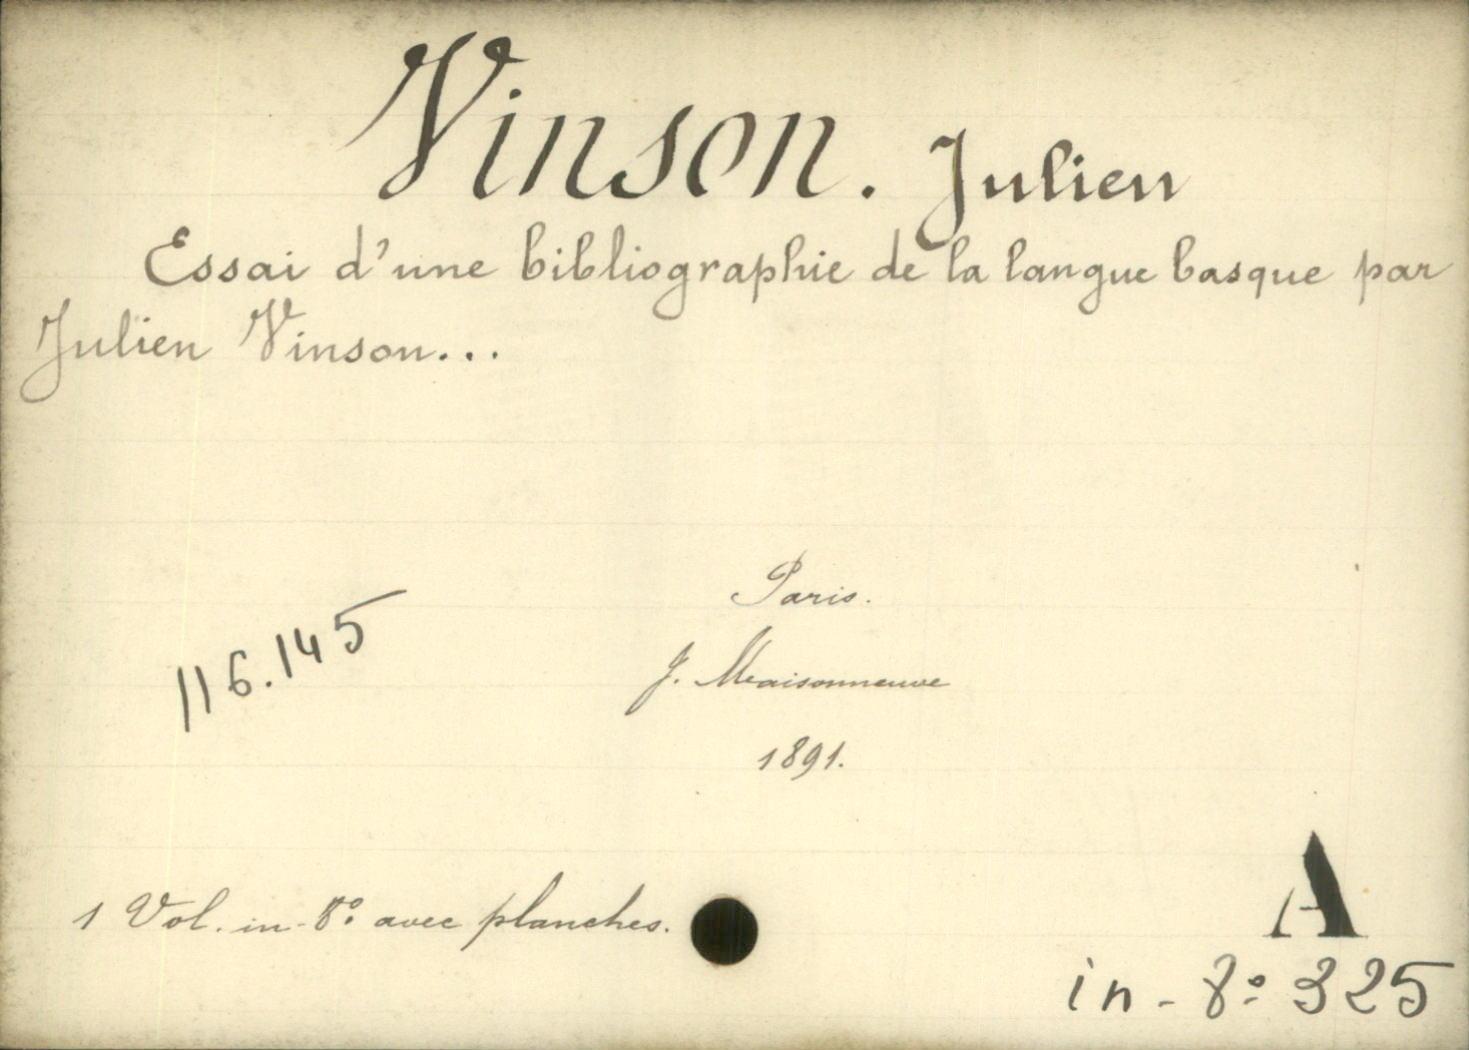 Vinson. Julien
Essai d'une bibliographie de la langue basque par
Julien Vinson...
Paris.
116.145
J. Maisonneuve
1891.
1 Vol. in-8º avec planches.
A
in-8º 325